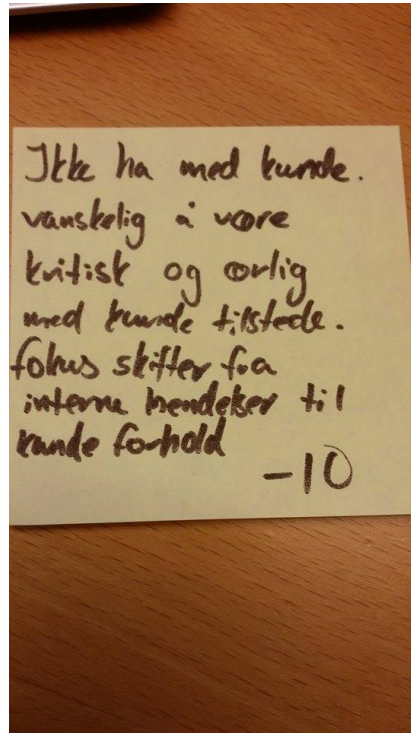 Ikke ha med kunde.
vanskelig å være
kritisk og ærlig
med kunde tilstede.
fokus skifter fra
interne hendelser til
kunde forhold
-10